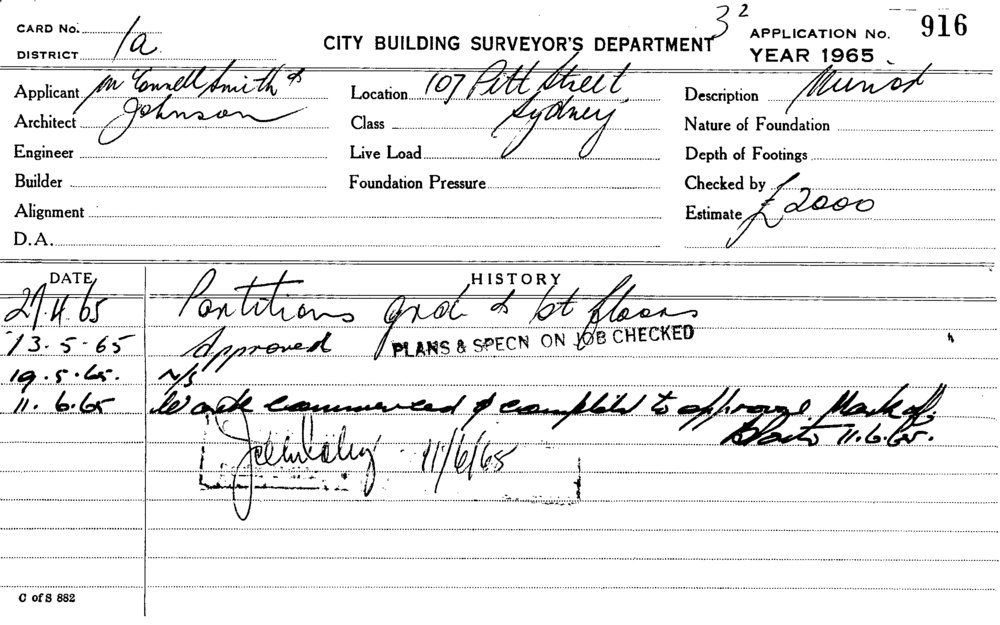 CARD No. 1a
DISTRICT
CITY BUILDING SURVEYOR'S DEPARTMENT
3²
APPLICATION No. 916
YEAR 1965
Applicant McConnell Smith &
Architect Johnson
Engineer
Builder
Alignment
D.A.
Location 107 Pitt Street
Class Sydney
Live Load
Foundation Pressure
Description Minor
Nature of Foundation
Depth of Footings
Checked by
Estimate £2000
DATE HISTORY
27.4.65 Partitions grd & 1st floors
13.5.65 Approved PLANS & SPECN ON JOB CHECKED
19.5.65. N/S
11.6.65 Work commenced & complete to approval Mark off.
11.6.65.
11/6/65
C of S 882